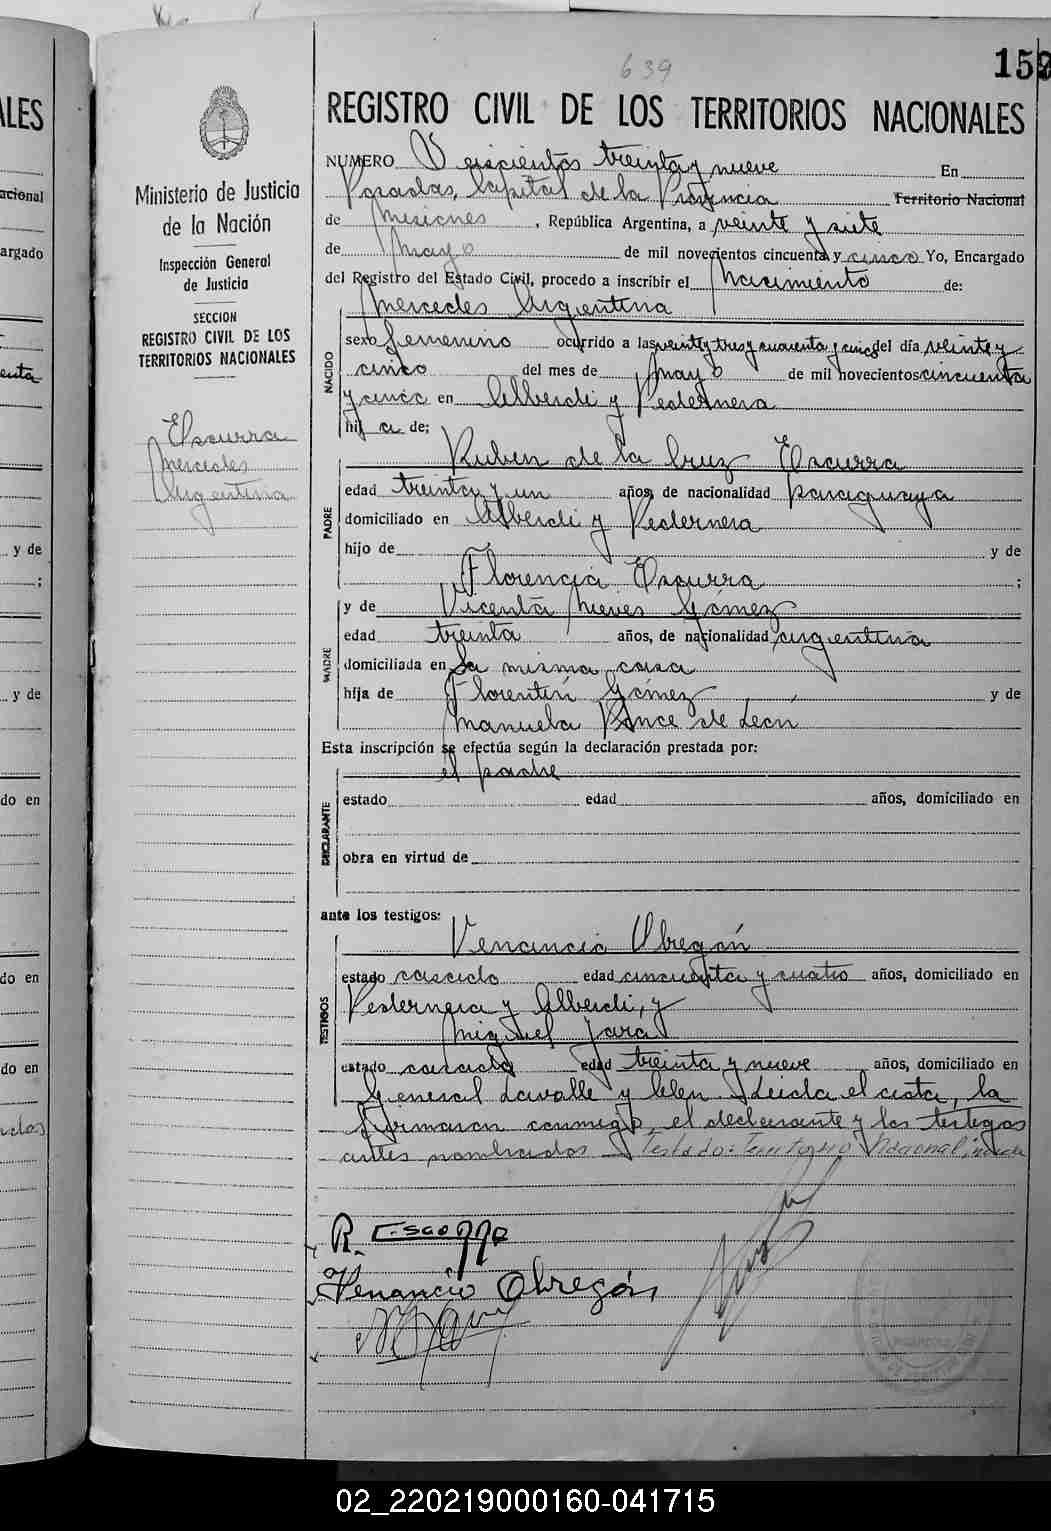 639
159
REGISTRO CIVIL DE LOS TERRITORIOS NACIONALES
Ministerio de Justicia
de la Nación
Inspección General
de Justicia
SECCION
REGISTRO CIVIL DE LOS
TERRITORIOS NACIONALES
Escurra
Mercedes
Argentina
NUMERO Seiscientos treinta y nueve En
Posadas, Capital de la Provincia Territorio Nacional
de Misiones, República Argentina, a veinte y siete
de Mayo de mil novecientos cincuenta y cinco Yo, Encargado
del Registro del Estado Civil, procedo a inscribir el Nacimiento de:
Mercedes Argentina
NACIDO
sexo femenino ocurrido a las veinte y tres y cuarenta y cinco del día veinte y
cinco del mes de mayo de mil novecientos cincuenta
y cinco en Alberdi y Pedernera
hij a de;
Ruben de la Cruz Escurra
PADRE
edad treinta y un años, de nacionalidad paraguaya
domiciliado en Alberdi y Pedernera
hijo de y de
Florencia Escurra ;
y de Vicenta Nieves Gómez
MADRE
edad treinta años, de nacionalidad argentina
domiciliada en la misma casa
hija de Florentín Gómez y de
Manuela Ponce de León
Esta inscripción se efectúa según la declaración prestada por:
el padre
DECLARANTE
estado edad años, domiciliado en
obra en virtud de
ante los testigos:
Venancio Obregón
TESTIGOS
estado casado edad cincuenta y cuatro años, domiciliado en
Pedernera y Alberdi, y
Miguel Jara
estado casado edad treinta y nueve años, domiciliado en
General Lavalle y Leida el acta, la
firmaron conmigo, el declarante y los testigos
antes nombrados. Testado: Territorio Nacional,
R. Escurra
Venancio Obregón
ALES
acional
argado
enta
y de
;
y de
do en
do en
do en
02_220219000160-041715